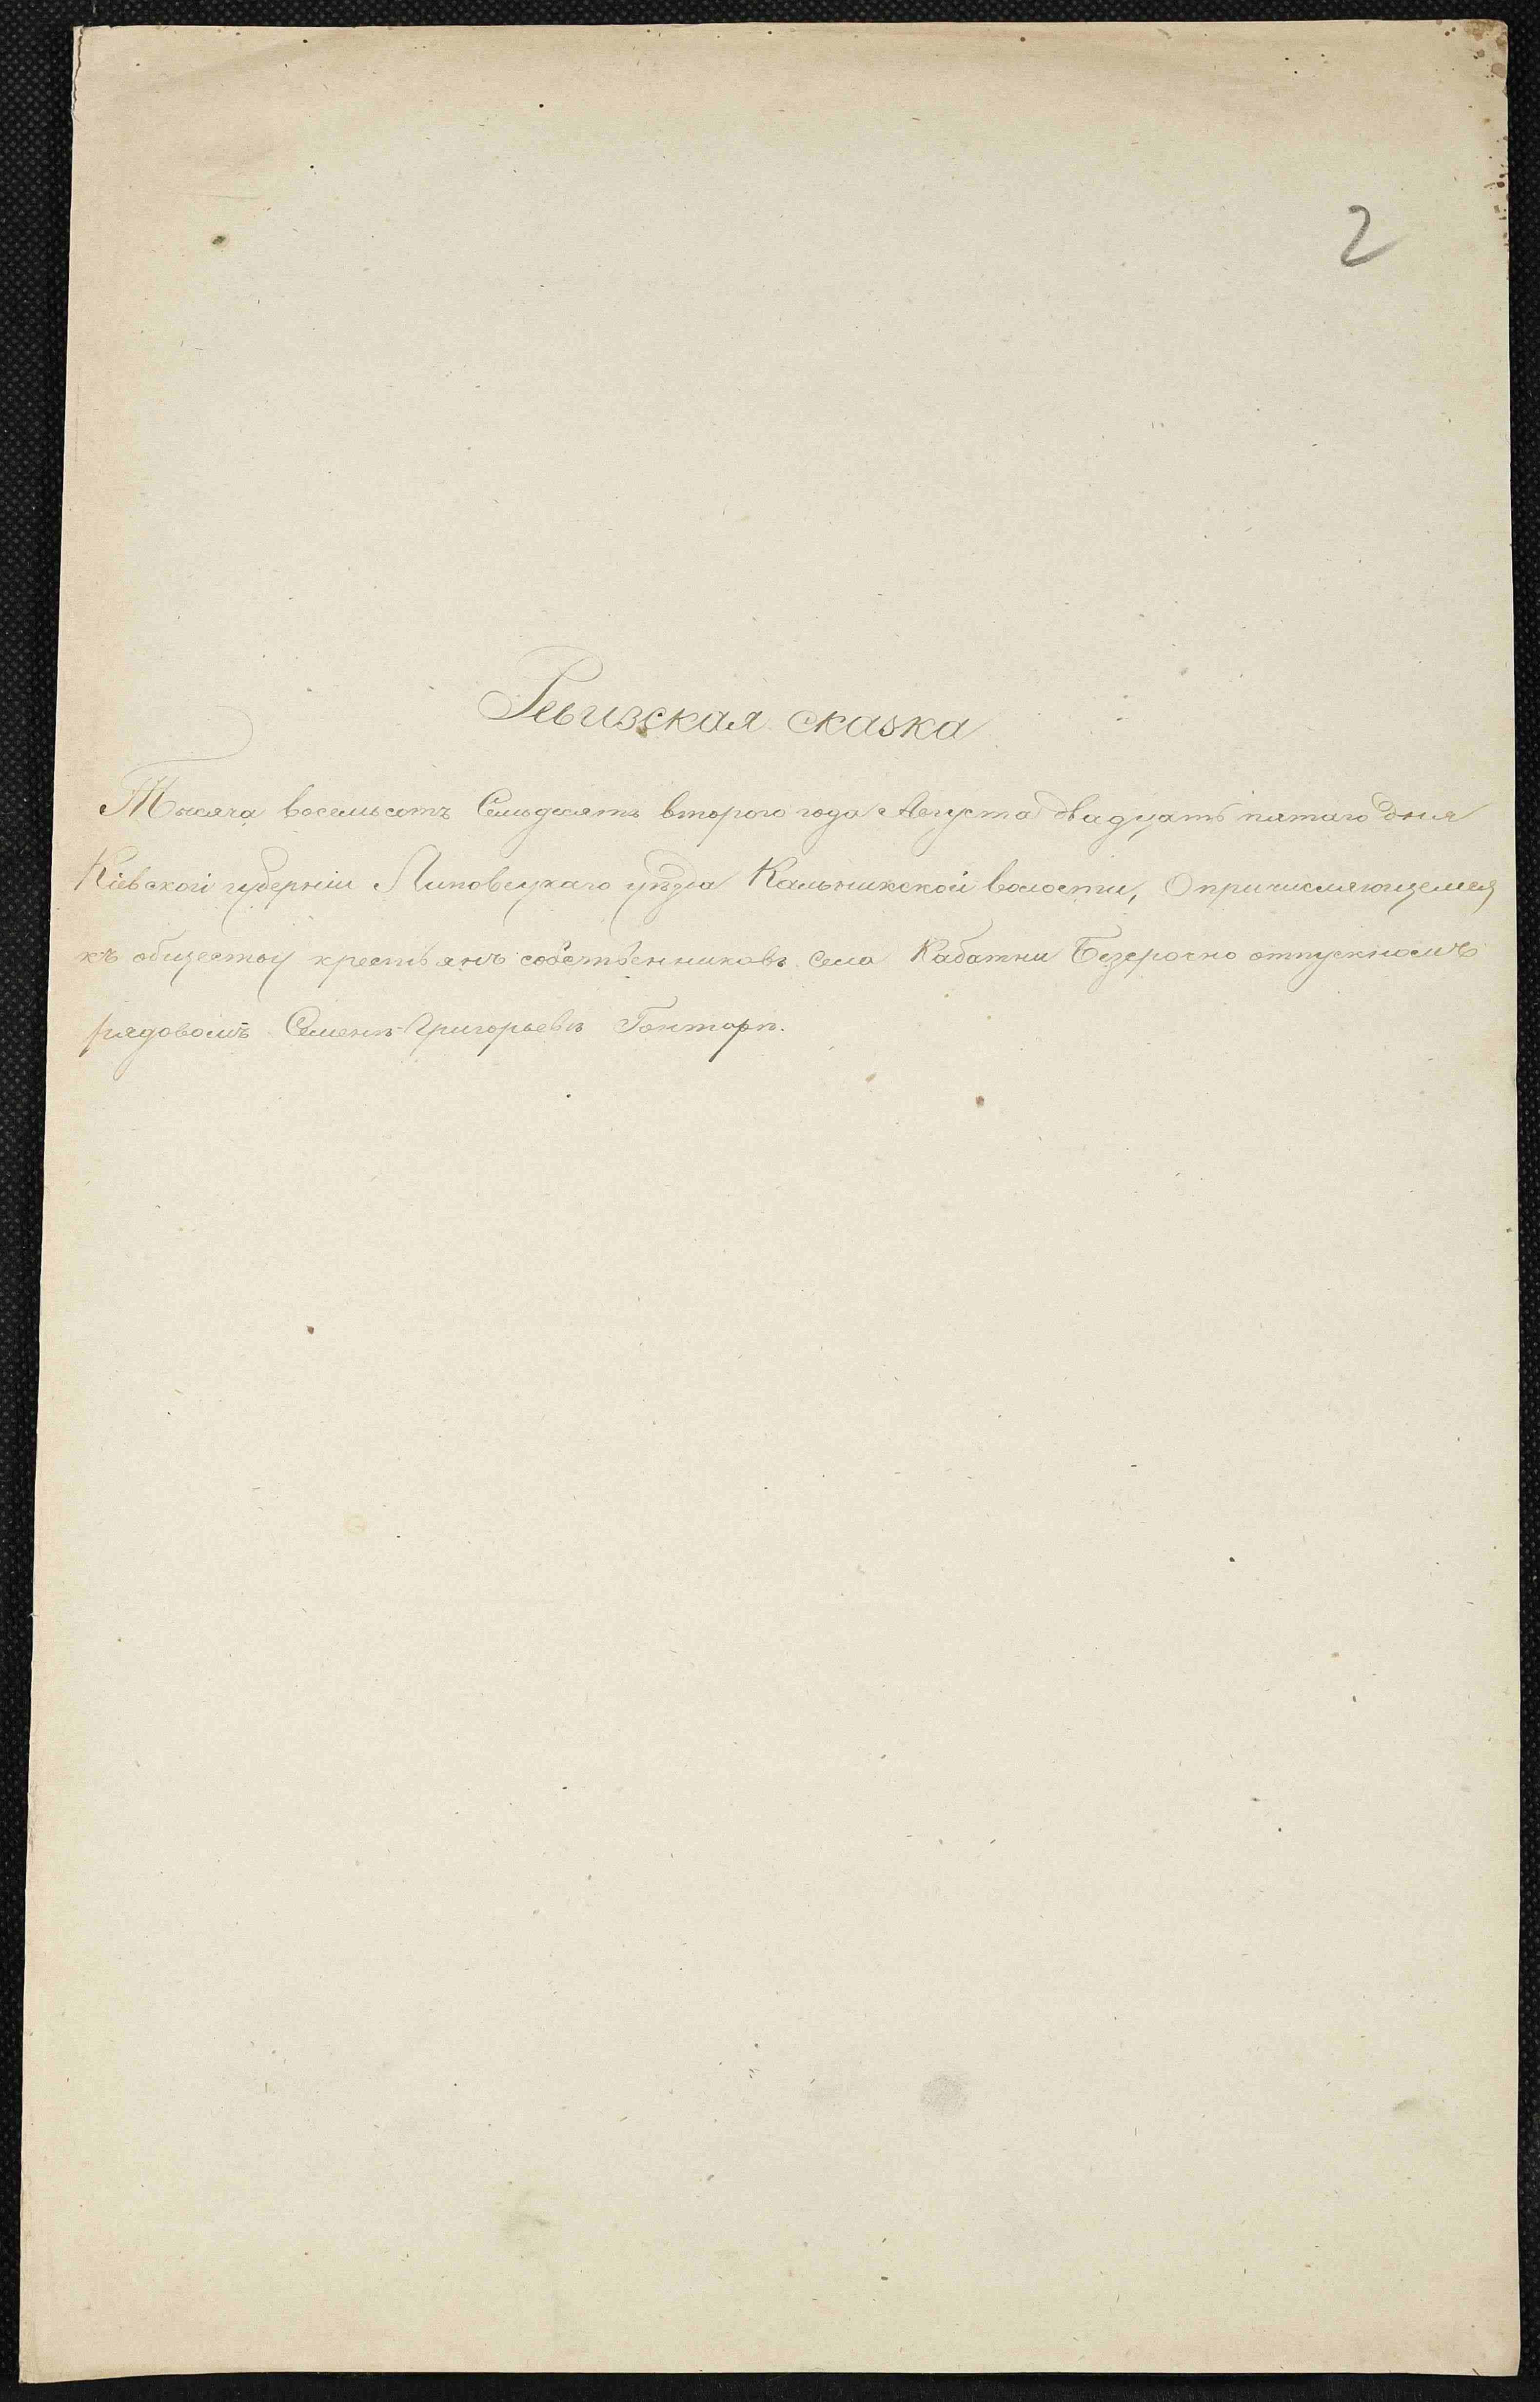 2
Ревизская сказка
Тысяча восемьсотъ Семьдесятъ втораго года Августа двадцать пятаго дня
Кіевской губерніи Липовецкаго уѣзда Кальникской волости, О причисляющемся
къ обществу крестьянъ собственниковъ села Кабатни Безсрочно отпускномъ
рядовомъ Семенѣ Григорьевѣ Гонтарѣ.